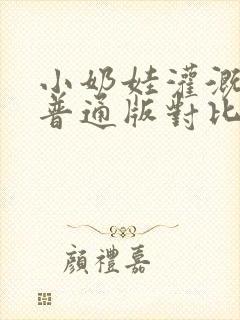 小奶娃灌溉
普通版對比
顏禮嘉